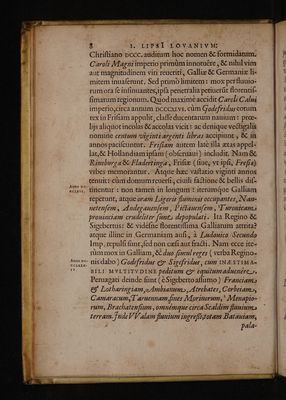 8 I. LIPSI LOVANIVM:
Christiano DCCC. auditum hoc nomen & formidatum.
Caroli Magni imperio primùm innotuêre, & nihil vim
aut magnitudinem viri reueriti, Galliæ & Germaniæ li-
mitem inuaserunt. Sed primò limitem: mox per fluuio-
rum ora se insinuantes, ipsa penetralia petiuerunt florentis-
simarum regionum. Quod maximè accidit Caroli Calui
imperio, circa annum cùm Godefridus eorum
rex in Frisiam appulit, classe ducentarum nauium: prœ-
lijs aliquot incolas & accolas vicit: ac denique vectigalis
nomine centum viginti argenti libras accipiunt, & in
annos paciscuntur. Frisiam autem latè illa ætas appel-
lat, & Hollandiam ipsam (obseruaui) includit. Nam &
vrbes memorantur. Atque hæc vastatio viginti annos
tenuit: cùm domum reuersi, ciuili factione & bellis dis-
tinentur: non tamen in longum: iterumque Galliam
repetunt, atque oram Ligeris fluminis occupantes, Nan-
netensem, Andegauensem, Pictauensem, Turonicam
prouinciam crudeliter sunt depopulati. Ita Regino &
Sigebertus: & vidisse florentissima Galliarum attrita?
atque illinc in Germaniam ausi, à Ludouico Secundo
Imp. repulsi sunt, sed non cæsi aut fracti. Nam ecce ite-
rùm mox in Galliam, & duo simul reges (verba Regino-
nis dabo) Godefridus & Sigefridus, cum INÆSTIMA-
BILI MVLTITVDINE peditum & equitum aduenêre.
Peruagati deinde sunt (è Sigeberto assumo) Franciam
& Lotharingiam, Ambianum, Atrebates, Corbeiam,
Camaracum, Taruennam, fines Morinorum, Menapio-
rum, Brachatensium, omnemque circa Scaldim fluuium
terram. Inde VValam fluuium ingressi, totam Batauiam,
pala-